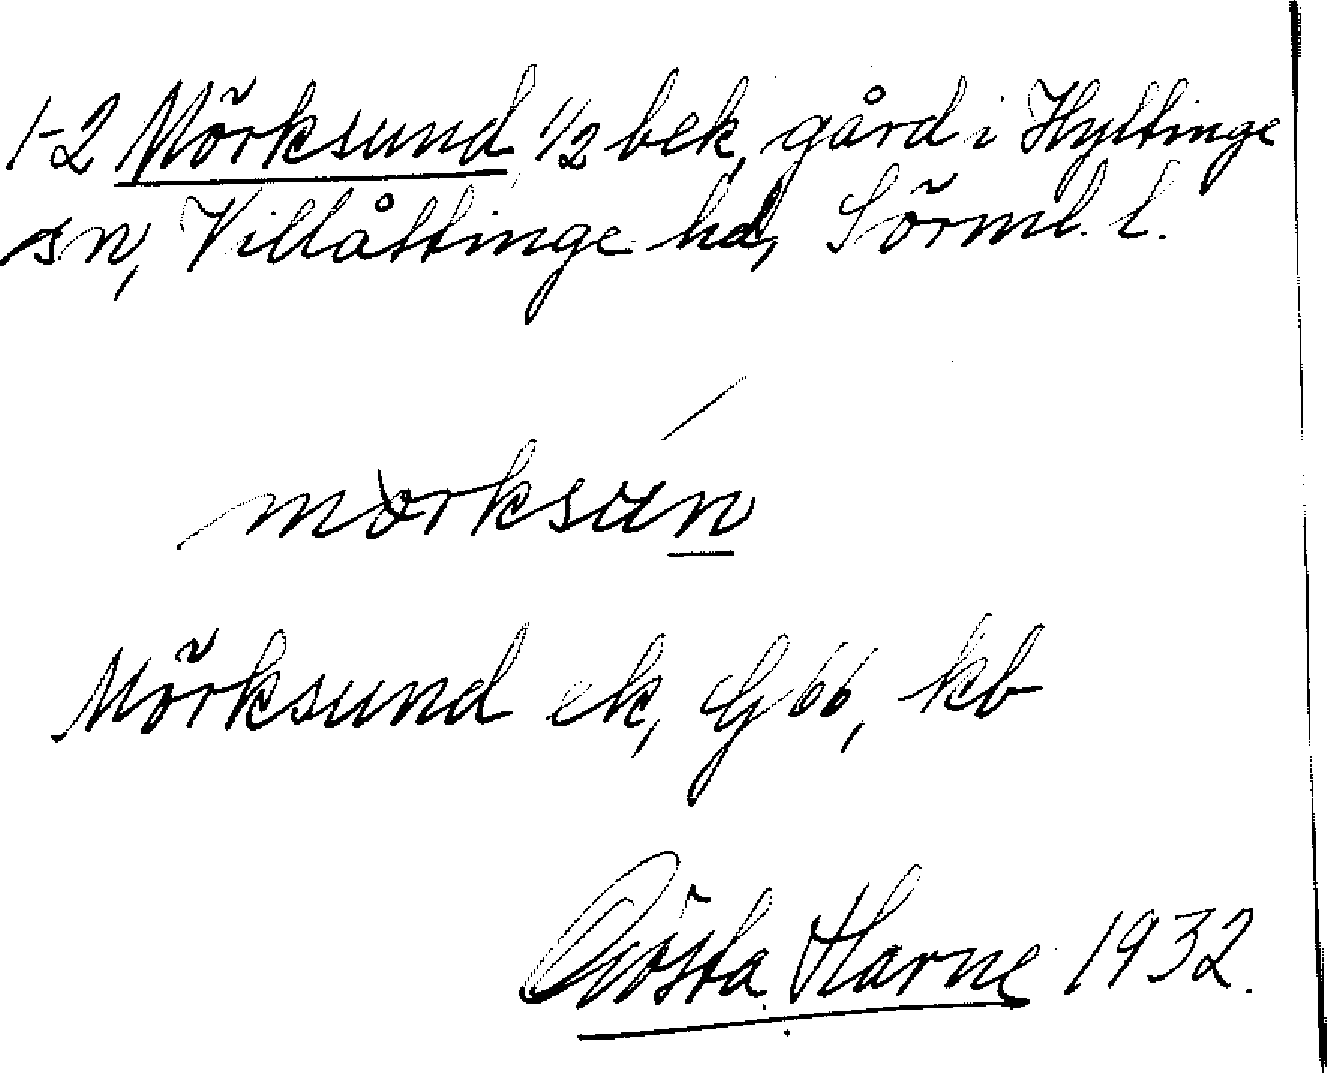 1-2 Mörksund, 1/2 bek, gård i Hyltinge
sn, Villåttinge hd, Sörml. l.
mörksun
Mörksund ek, G 66, kb
Gösta Harne 1932.